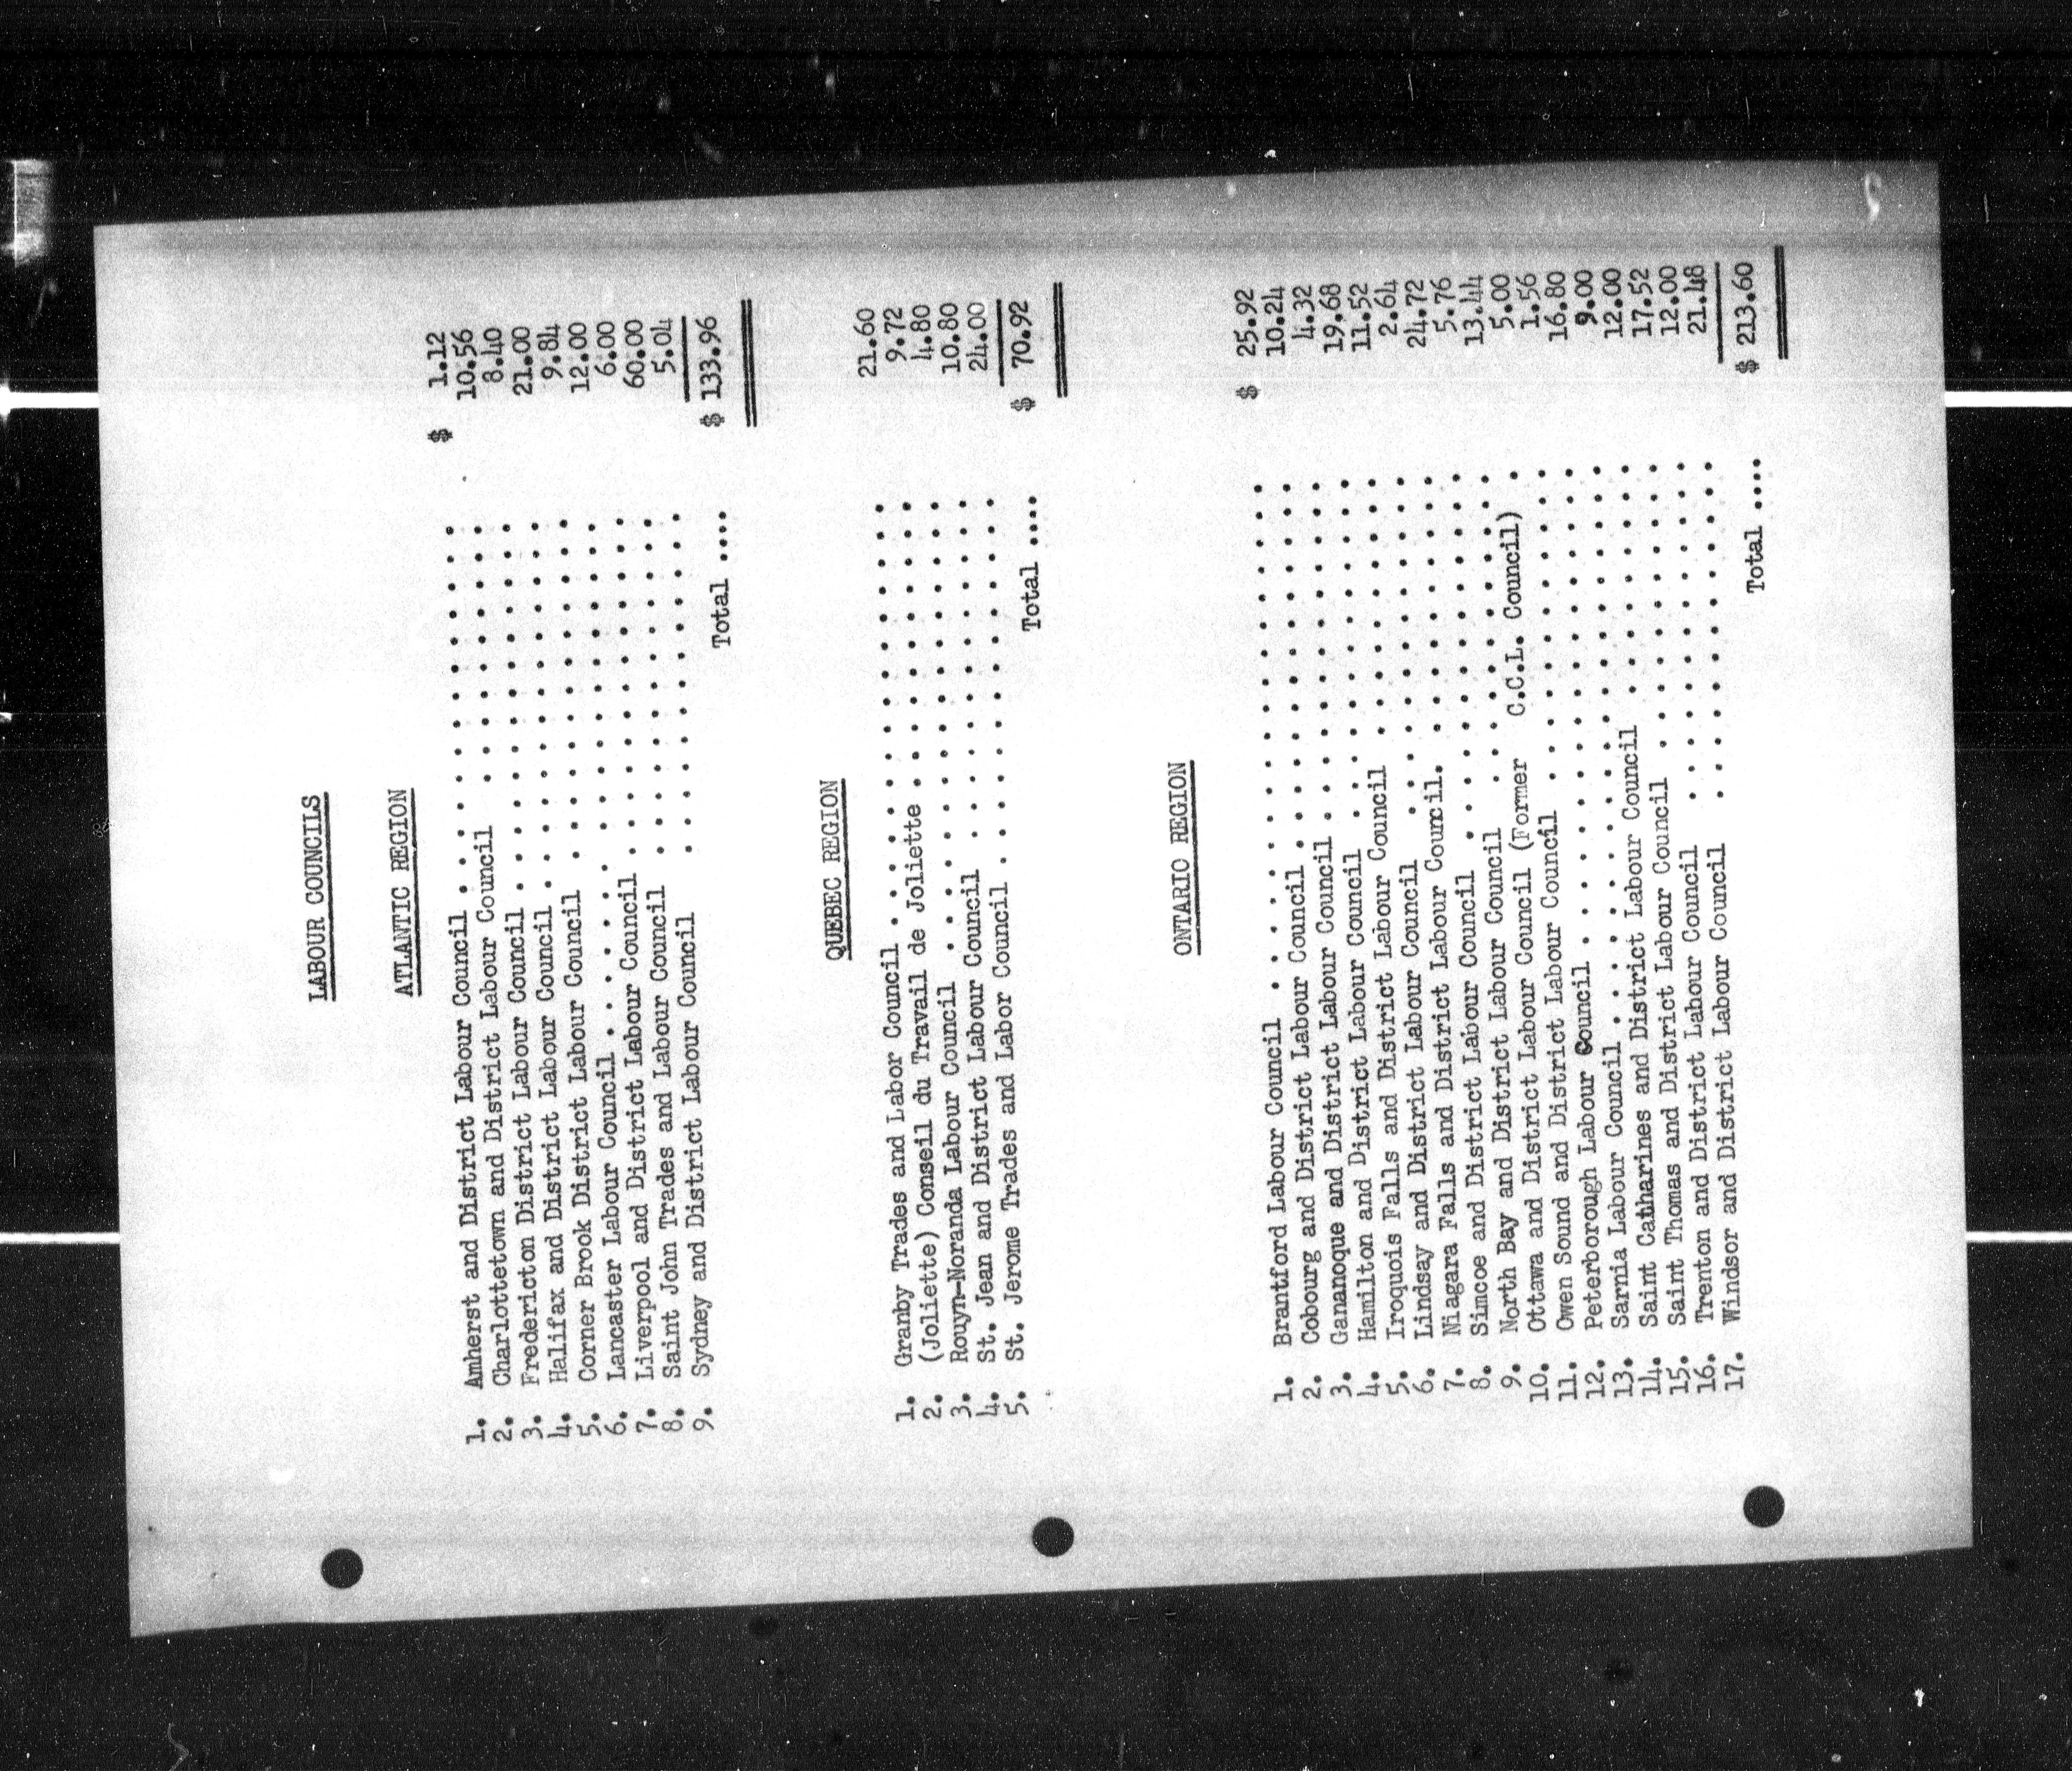 LABOUR COUNCILS
ATLANTIC REGION
1. Amherst and District Labour Council . . . . . . . . . . . . . . . . $ 1.12
2. Charlottetown and District Labour Council . . . . . . . . . . . . 10.56
3. Fredericton District Labour Council . . . . . . . . . . . . . . 8.40
4. Halifax and District Labour Council . . . . . . . . . . . . . . 21.00
5. Corner Brook District Labour Council . . . . . . . . . . . . . 9.84
6. Lancaster Labour Council . . . . . . . . . . . . . . . . . . . 12.00
7. Liverpool and District Labour Council . . . . . . . . . . . . . 6.00
8. Saint John Trades and Labour Council . . . . . . . . . . . . . 60.00
9. Sydney and District Labour Council . . . . . . . . . . . . . 5.04
Total .... $ 133.96
QUEBEC REGION
1. Granby Trades and Labor Council . . . . . . . . . . . . . . . . 21.60
2. (Joliette) Conseil du Travail de Joliette . . . . . . . . . . . . 9.72
3. Rouyn-Noranda Labour Council . . . . . . . . . . . . . . . . . 4.80
4. St. Jean and District Labour Council . . . . . . . . . . . . . 10.80
5. St. Jerome Trades and Labor Council . . . . . . . . . . . . . . 24.00
Total .... $ 70.92
ONTARIO REGION
1. Brantford Labour Council . . . . . . . . . . . . . . . . . . . $ 25.92
2. Cobourg and District Labour Council . . . . . . . . . . . . . . 10.24
3. Gananoque and District Labour Council . . . . . . . . . . . . . 4.32
4. Hamilton and District Labour Council . . . . . . . . . . . . . 19.68
5. Iroquois Falls and District Labour Council . . . . . . . . . . 11.52
6. Lindsay and District Labour Council . . . . . . . . . . . . . 2.64
7. Niagara Falls and District Labour Council. . . . . . . . . . . 24.72
8. Simcoe and District Labour Council . . . . . . . . . . . . . . 5.76
9. North Bay and District Labour Council . . . . . . . . . . . . 13.44
10. Ottawa and District Labour Council (Former C.C.L. Council) . 5.00
11. Owen Sound and District Labour Council . . . . . . . . . . . . 1.56
12. Peterborough Labour Council . . . . . . . . . . . . . . . . . 16.80
13. Sarnia Labour Council . . . . . . . . . . . . . . . . . . . . 9.00
14. Saint Catharines and District Labour Council . . . . . . . . . 12.00
15. Saint Thomas and District Labour Council . . . . . . . . . . . 17.52
16. Trenton and District Labour Council . . . . . . . . . . . . . 12.00
17. Windsor and District Labour Council . . . . . . . . . . . . . 21.48
Total .... $ 213.60